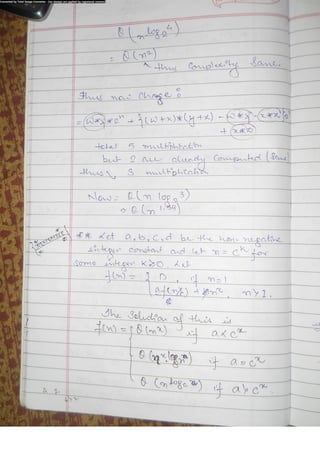 Converted by Total Image Converter - Use version by registered version.
θ(n^log₂4)
= θ(n²)
↖ thus Complexity Same.
Thus now change :
= (w*y)*2ⁿ + {(w+x)*(y+z) - w*y - x*z}
+ (x*z)
total 5 multiplication
but 2 are already computed (same
thus 3 multiplication
Now: θ(n log₂3)
= θ(n^1.59)
** Let a,b,c,d be the non negative
integer constant and let n = c^k for
some integer k>0. Let
f(n) = { 0, if n=1
a f(n/c) + bn^x, n>1.
The Solution of this is
f(n) = { θ(n^x) if a<c^x
θ(n^x log n) if a=c^x
θ(n log_c a) if a>c^x.